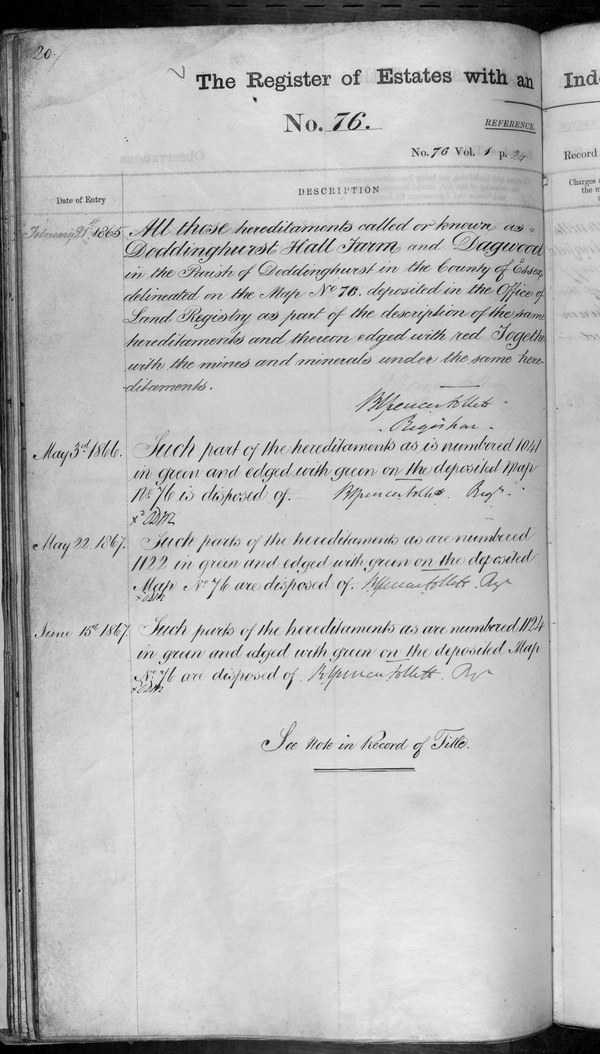 20.
The Register of Estates with an
No. 76.
REFERENCE.
No. 76 Vol. 1 p. 24
Date of Entry
DESCRIPTION
February 21st 1865 All those hereditaments called or known as
Doddinghurst Hall Farm and Dagwood
in the Parish of Doddinghurst in the County of Essex
delineated on the Map No 76. deposited in the Office of
Land Registry as part of the description of the same
hereditaments and thereon edged with red Togethe
with the mines and minerals under the same here-
ditaments.
B Spencer Follett
Registrar.
May 3rd 1866. Such part of the hereditaments as is numbered 1041
in green and edged with green on the deposited Map
No 76 is disposed of. B Spencer Follett. Regr.
May 22 1867. Such parts of the hereditaments as are numbered
1122 in green and edged with green on the deposited
Map No 76 are disposed of. B Spencer Follett Regr
June 15th 1867. Such parts of the hereditaments as are numbered 1124
in green and edged with green on the deposited Map
No 76 are disposed of. B Spencer Follett. Regr
See Note in Record of Title.
Ind
Record
Charges